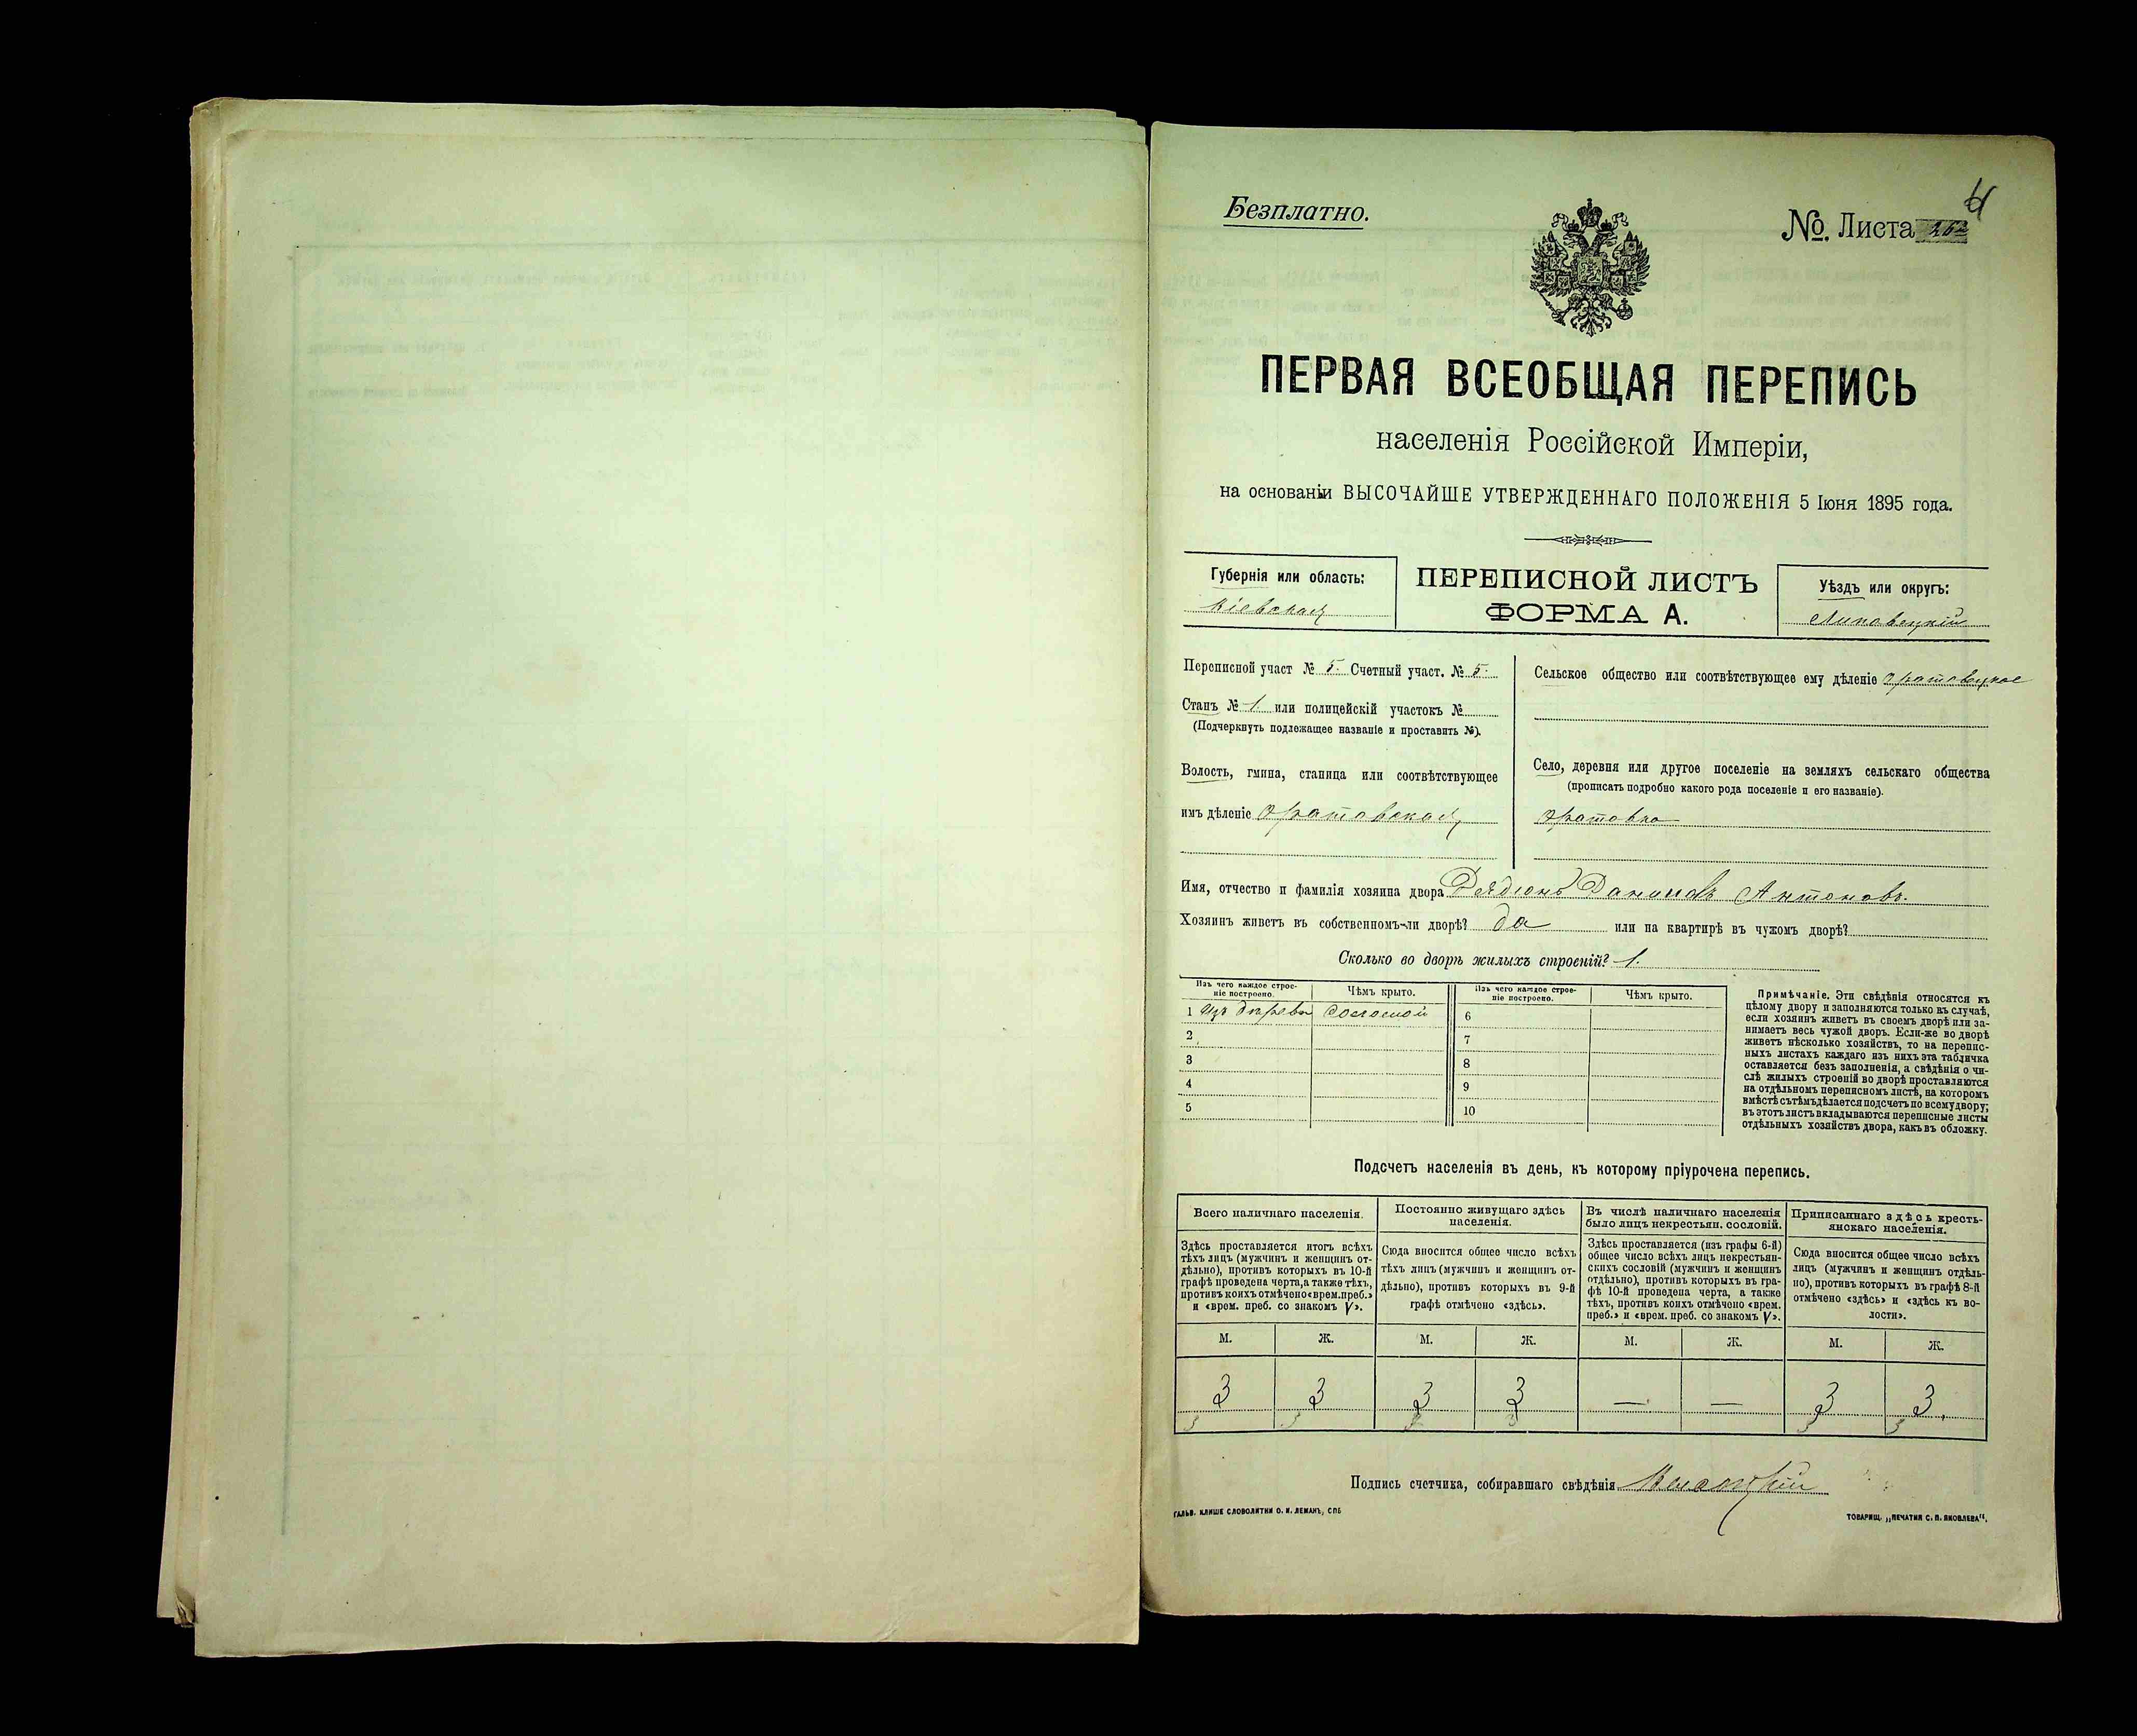 Безплатно.
№. Листа 252
ПЕРВАЯ ВСЕОБЩАЯ ПЕРЕПИСЬ
населенія Россійской Имперіи,
на основаніи ВЫСОЧАЙШЕ УТВЕРЖДЕННАГО ПОЛОЖЕНІЯ 5 Іюня 1895 года.
Губернія или область:
Кіевская
ПЕРЕПИСНОЙ ЛИСТЪ
ФОРМА А.
Уѣздъ или округъ:
Липовецкій
Переписной участ № 5. Счетный участ. № 5.
Станъ № 1 или полицейскій участокъ №
(Подчеркнуть подлежащее названіе и проставить №).
Волость, гмина, станица или соотвѣтствующее
имъ дѣленіе Оратовская
Сельское общество или соотвѣтствующее ему дѣленіе Оратовецкое
Село, деревня или другое поселеніе на земляхъ сельскаго общества
(прописать подробно какого рода поселеніе и его названіе).
Оратовка
Имя, отчество и фамилія хозяина двора Данилъ Антоновъ.
Хозяинъ живетъ въ собственномъ-ли дворѣ? да или на квартирѣ въ чужомъ дворѣ?
Сколько во дворѣ жилыхъ строеній? 1.
Изъ чего каждое строе-
ніе построено.
Чѣмъ крыто.
Изъ чего каждое строе-
ніе построено.
Чѣмъ крыто.
1 Изъ дерева Соломой
6
2
7
3
8
4
9
5
10
Примѣчаніе. Эти свѣдѣнія относятся къ
цѣлому двору и заполняются только въ случаѣ,
если хозяинъ живетъ въ своемъ дворѣ или за-
нимаетъ весь чужой дворъ. Если-же во дворѣ
живетъ нѣсколько хозяйствъ, то на перепис-
ныхъ листахъ каждаго изъ нихъ эта табличка
оставляется безъ заполненія, а свѣдѣнія о чи-
слѣ жилыхъ строеній во дворѣ проставляются
на отдѣльномъ переписномъ листѣ, на которомъ
вмѣстѣ съ тѣмъ дѣлается подсчетъ по всему двору;
въ этотъ листъ вкладываются переписные листы
отдѣльныхъ хозяйствъ двора, какъ въ обложку.
Подсчетъ населенія въ день, къ которому пріурочена перепись.
Всего наличнаго населенія.
Здѣсь проставляется итогъ всѣхъ
тѣхъ лицъ (мужчинъ и женщинъ от-
дѣльно), противъ которыхъ въ 10-й
графѣ проведена черта, а также тѣхъ,
противъ коихъ отмѣчено «врем. преб.»
и «врем. преб. со знакомъ V».
Постоянно живущаго здѣсь
населенія.
Сюда вносится общее число всѣхъ
тѣхъ лицъ (мужчинъ и женщинъ от-
дѣльно), противъ которыхъ въ 9-й
графѣ отмѣчено «здѣсь».
Въ числѣ наличнаго населенія
было лицъ некрестьян. сословій.
Здѣсь проставляется (изъ графы 6-й)
общее число всѣхъ лицъ некрестьян-
скихъ сословій (мужчинъ и женщинъ
отдѣльно), противъ которыхъ въ гра-
фѣ 10-й проведена черта, а также
тѣхъ, противъ коихъ отмѣчено «врем.
преб.» и «врем. преб. со знакомъ V».
Приписаннаго здѣсь кресть-
янскаго населенія.
Сюда вносится общее число всѣхъ
лицъ (мужчинъ и женщинъ отдѣль-
но), противъ которыхъ въ графѣ 8-й
отмѣчено «здѣсь» и «здѣсь къ во-
лости».
М. Ж. М. Ж. М. Ж. М. Ж.
3 3 3 3 — — 3 3.
3 3 3 3 3 3
Подпись счетчика, собиравшаго свѣдѣнія
ГАЛЬВ. КЛИШЕ СЛОВОЛИТНИ О. И. ЛЕМАНЪ, СПБ
ТОВАРИЩ. „ПЕЧАТНЯ С. П. ЯКОВЛЕВА".